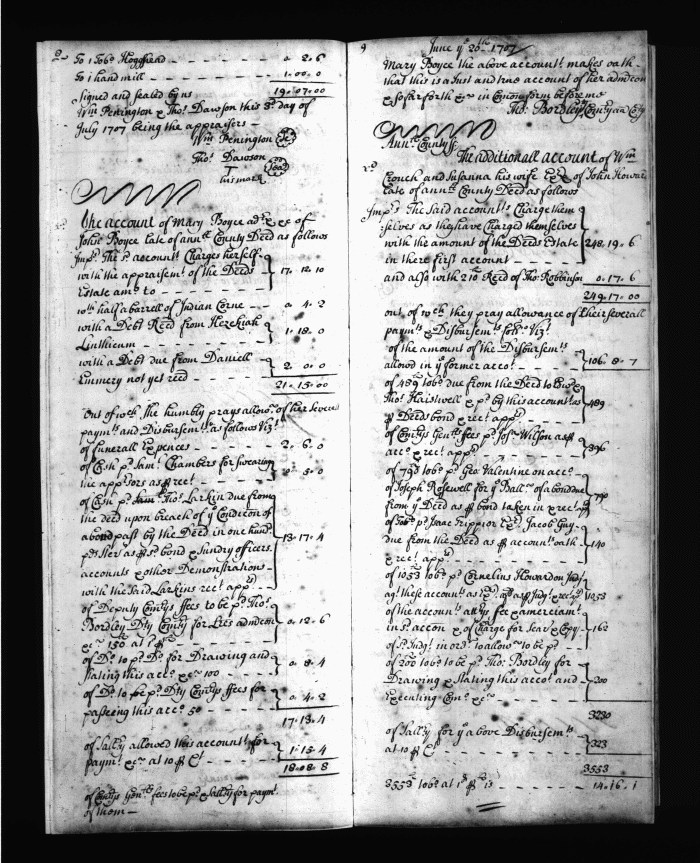 8
To 1 Tobo Hoggshead - - - 0. 2. 6
To 1 hand mill - - - 1. 00. 0
19. 07. 00
Signed and sealed by us
Wm Penington & Tho: Dawson this 3d day of
July 1707 being the appraisers -
Wm Penington Seal
Tho: Dawson Seal
T
his mark
The account of Mary Boyce adx &c of
John Boyce late of annll County Deced as follows
Imps The sd accountt Charges herself
with the appraisemt of the Deceds
Estate amo to - - - 17. 12. 10
wth half a barrell of Indian Corne - 0. 4. 2
with a Debt Reced from Hezekiah
Linthicum - - - 1. 18. 0
with a Debt due from Daniell
Emmery not yet reced - - - 2. 0. 0
21. 15. 00
Out of wch The humbly prays allow: of her severll
paymts and Disbursemts as follows Vizt
of funerall Expences - - - 2. 6. 0
of Cash pd Saml Chambers for swearing
the apprsors as p rect - - - 0. 5. 0
of Cash pd Tho: Larkin due from
the deced upon breach of ye Condicon of
a bond past by the Deced in one hund
p sd bond & sundry officers
accounts & other Demonstrations
with the said Larkins rect appd - 13. 17. 4
of Deputy Comrys ffees to be pd Tho:
Bordley Dty Comry for Lres admcon
&c 150 at 1d p - - - 0. 12. 6
of Do to pd Do for Drawing and
stating this acct &c 100 - - - 0. 8. 4
of Do to be pd Dty Comrys ffees for
passeing this acct 50 - - - 0. 4. 2
17. 13. 4
of Sallry allowed this accountt for
paymt &c at 10 p Ct - - - 1. 15. 4
18. 08. 8
of Comrys Genlls fees to be pd & sallry for paymt
of them -
9
June ye 20th 1707
Mary Boyce the above accountt makes oath
that this is a Just and true account of her admcon
& so far forth &c in Comon form before me
Tho: Bordley
Annll County ss
The additionall account of Wm
Crouch and Susanna his wife Exx of John Howard
late of annll County Deced as follows
Imps The said accountts Charge them
selves as they have Charged themselves
with the amount of the Deceds Estate
in there first account - 248. 19. 6
and also with 210 Reced of Tho: Robbinson 0. 17. 6
249. 17. 00
out of wch they pray allowance of their severall
paymts & Disbursemts foll: Vizt
of the amount of the Disbursemts
allowd in ye former acct - 106. 8. 7
of 489 tobo due from the Deced to
Tho: Haislwell & pd by this accountt as
p Deceds bond & rect appd 489
of Comrys Genlls fees pd Josa Wilson as p
acct & rect appd 396
of 790 tobo pd Geo: Valentine on acct
of Joseph Rosewell for ye Ball: of a bond due
from ye Deced as p bond taken in & rect appd 790
of Tobo pd Isaac Jacob Guy
due from the Deced as p accountt oath
& rect appd 140
of 1053 tobo pd Cornelius Howard on Judgt
agt these accountts as Exr appd as p Judgt & rect appd 1053
of the accountts attrys fee & amerciamt
in sd accon & of Charge for Sear & Copy
of sd Judgt in ordr to allow to be pd 162
of 200 tobo to be pd Tho: Bordley for
Drawing & stating this acct and
Executing Comn &c - 200
3230
of Sallry for ye above Disbursemts
at 10 p Ct 323
3553
3553 tobo at 1d p is - - - 14. 16. 1